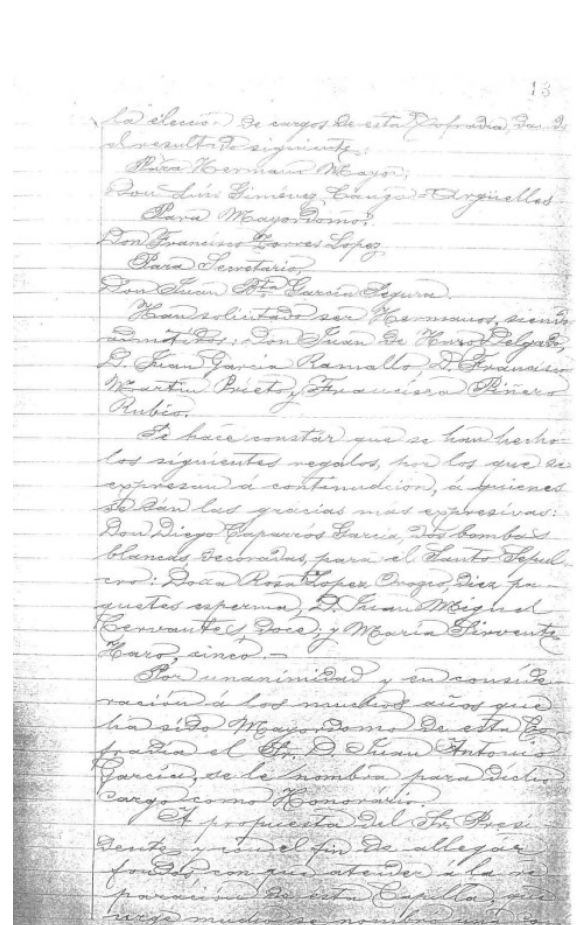 13
la elección de cargos de esta Cofradía, dando
el resultado siguiente:
Para Hermano Mayor,
Don Luis Giménez Canga-Argüelles
Para Mayordomo,
Don Francisco Torres Lopez
Para Secretario,
Don Juan Bta Garcia Segura.
Han solicitado ser Hermanos, siendo
admitidos: Don Juan de Haro Delgado,
D. Juan Garcia Ramallo, D. Francisco
Martin Prieto, y Francisca Piñero
Rubio.
Se hace constar que se han hecho
los siguientes regalos, por los que se
expresan á continuación, á quienes
se dán las gracias más expresivas:
Don Diego Caparrós Garcia, dos bombas
blancas decoradas, para el Santo Sepul-
cro: Doña Rosa Lopez Orozco, diez pa-
quetes esperma, D. Juan Miguel
Cervantes, doce, y Maria Sirvente
Haro, cinco.-
Por unanimidad y en conside-
ración á los muchos años que
ha sido Mayordomo de esta Co-
fradia el Sr. D. Juan Antonio
Garcia, se le nombra para dicho
cargo como Honorário.
A propuesta del Sr. Presi-
dente, y con el fin de allegar
fondos con que atender á la re-
paración de esta Capilla, que
urge mucho se nombró una com